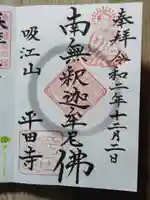 奉拝
令和二年十二月二日
南無釈迦牟尼佛
吸江山
平田寺